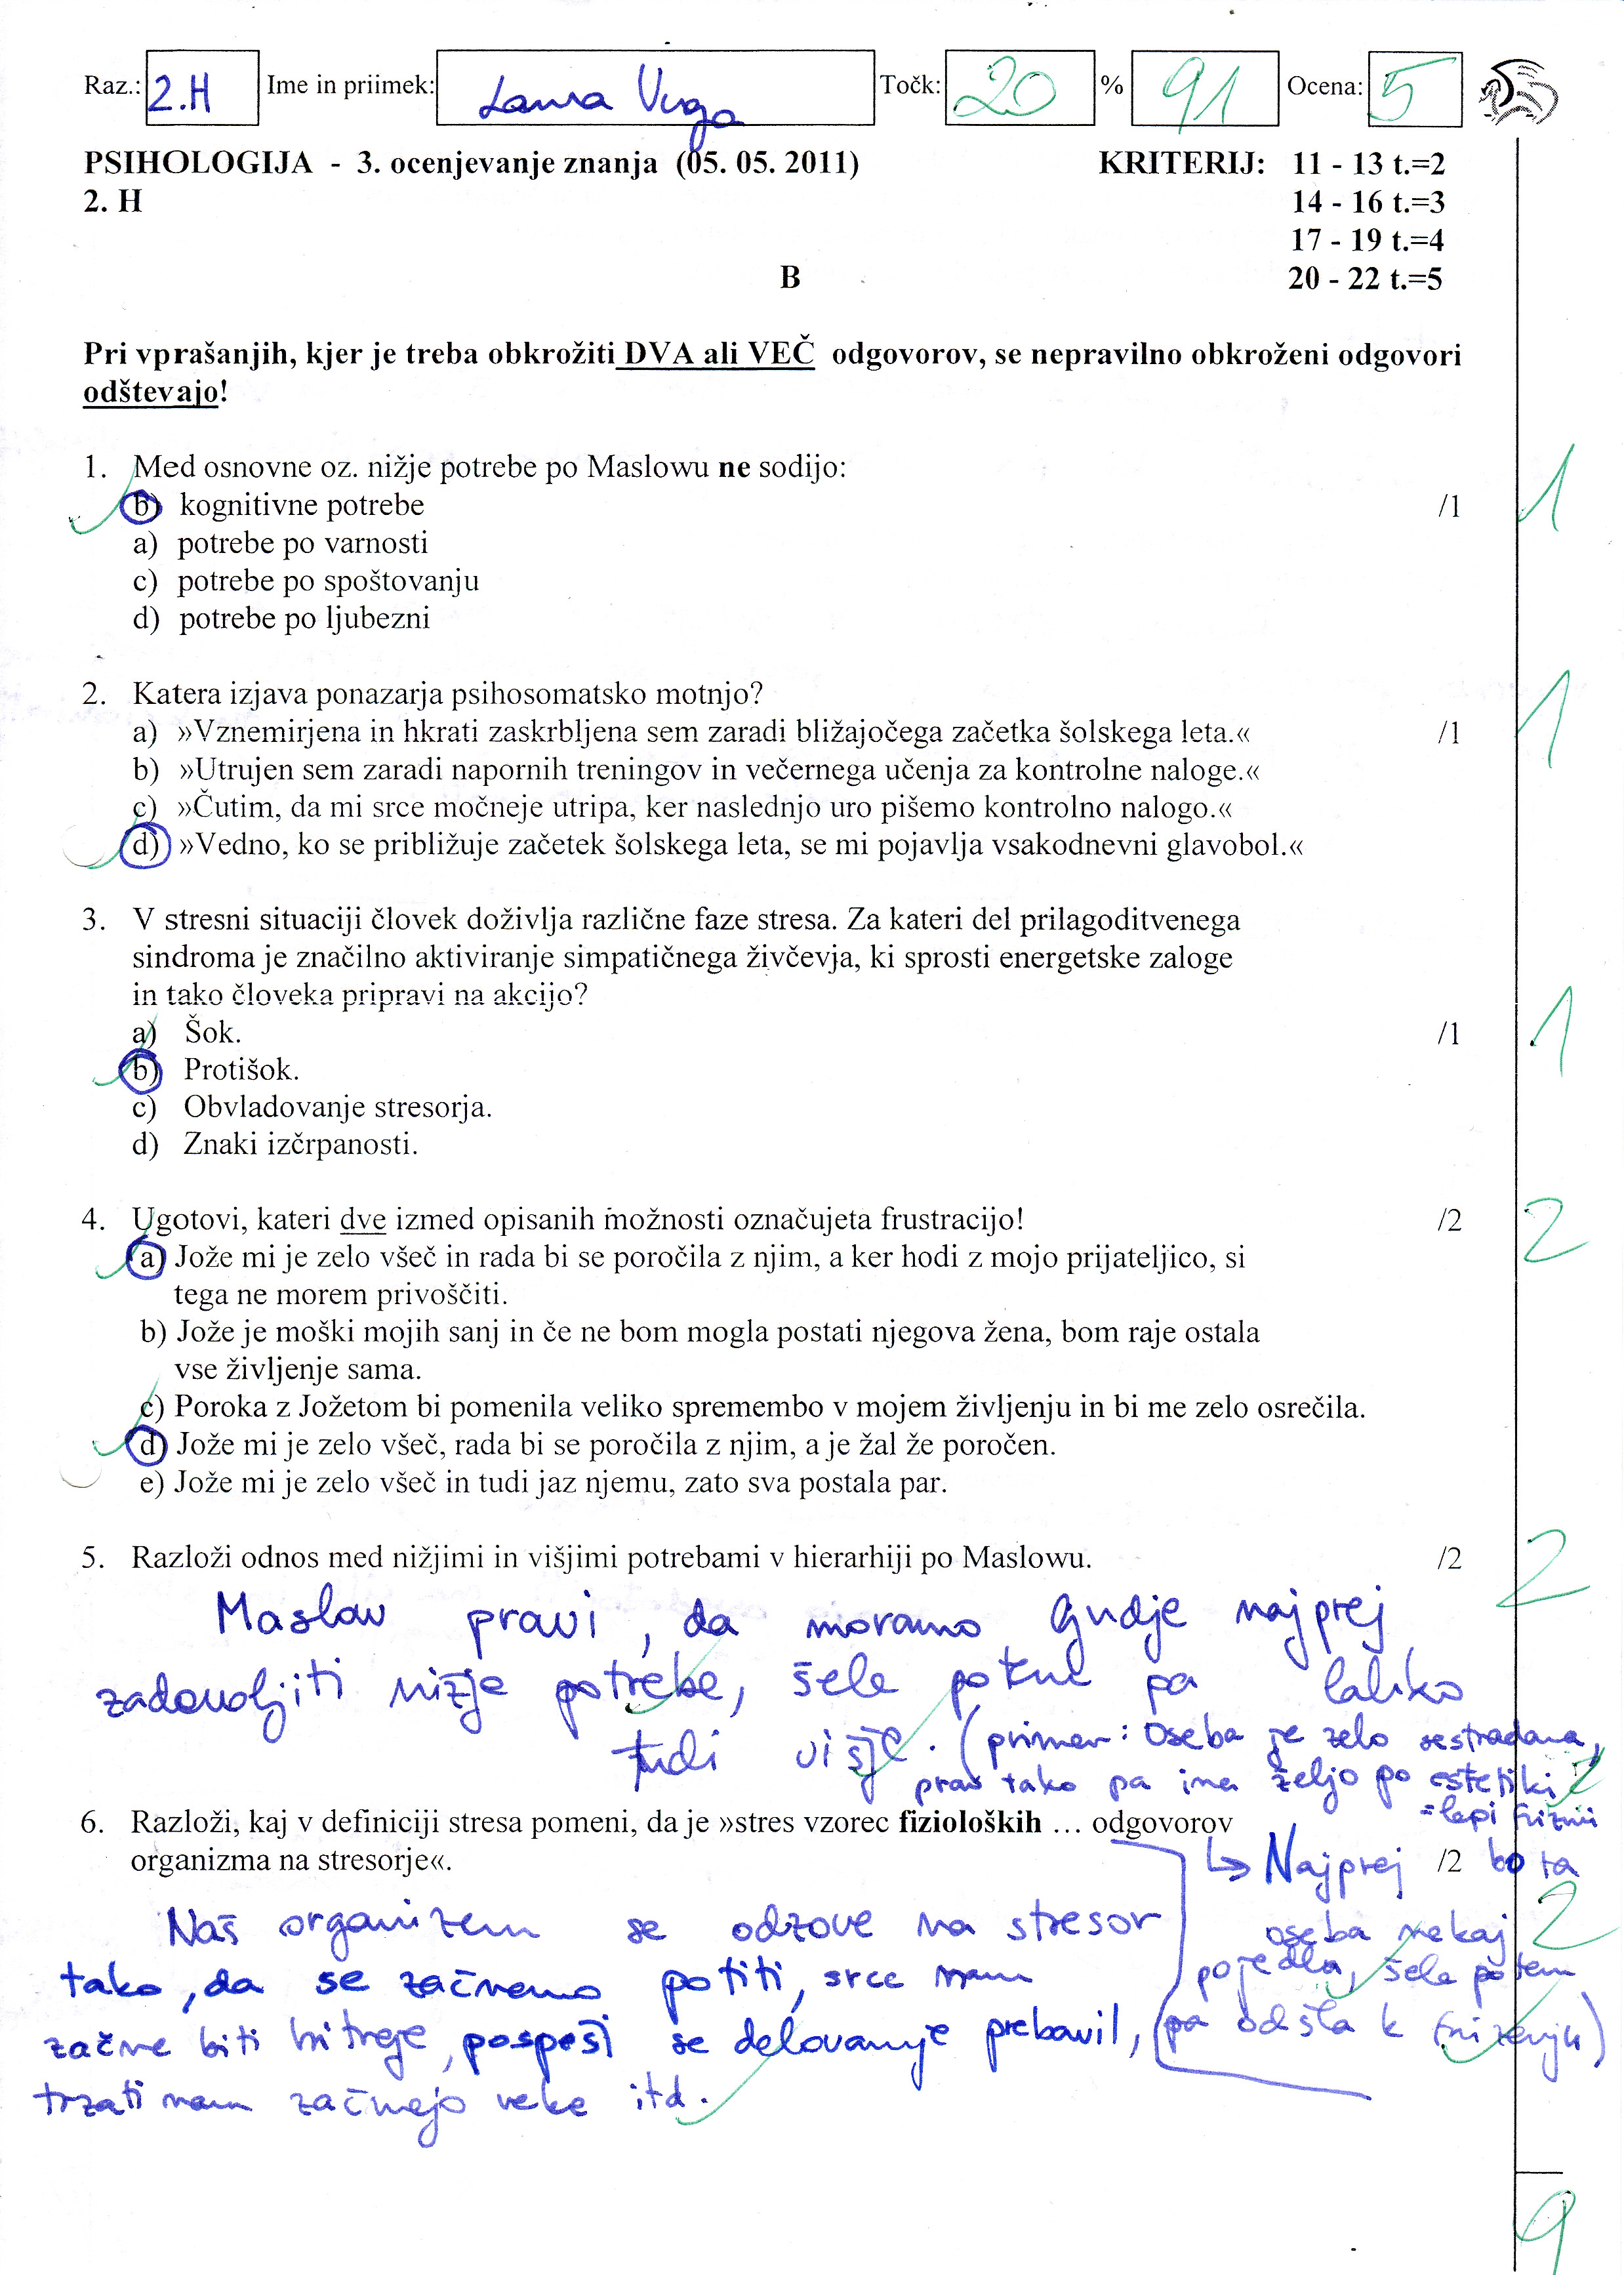 Raz.: 2.H Ime in priimek: Laura Vuga Točk: 20 % 91 Ocena: 5
PSIHOLOGIJA - 3. ocenjevanje znanja (05. 05. 2011) KRITERIJ: 11 - 13 t.=2
2. H 14 - 16 t.=3
17 - 19 t.=4
B 20 - 22 t.=5
Pri vprašanjih, kjer je treba obkrožiti DVA ali VEČ odgovorov, se nepravilno obkroženi odgovori
odštevajo!
1. Med osnovne oz. nižje potrebe po Maslowu ne sodijo:
b) kognitivne potrebe /1 1
a) potrebe po varnosti
c) potrebe po spoštovanju
d) potrebe po ljubezni
2. Katera izjava ponazarja psihosomatsko motnjo?
a) »Vznemirjena in hkrati zaskrbljena sem zaradi bližajočega začetka šolskega leta.« /1 1
b) »Utrujen sem zaradi napornih treningov in večernega učenja za kontrolne naloge.«
c) »Čutim, da mi srce močneje utripa, ker naslednjo uro pišemo kontrolno nalogo.«
d) »Vedno, ko se približuje začetek šolskega leta, se mi pojavlja vsakodnevni glavobol.«
3. V stresni situaciji človek doživlja različne faze stresa. Za kateri del prilagoditvenega
sindroma je značilno aktiviranje simpatičnega živčevja, ki sprosti energetske zaloge
in tako človeka pripravi na akcijo?
a) Šok. /1 1
b) Protišok.
c) Obvladovanje stresorja.
d) Znaki izčrpanosti.
4. Ugotovi, kateri dve izmed opisanih možnosti označujeta frustracijo! /2 2
a) Jože mi je zelo všeč in rada bi se poročila z njim, a ker hodi z mojo prijateljico, si
tega ne morem privoščiti.
b) Jože je moški mojih sanj in če ne bom mogla postati njegova žena, bom raje ostala
vse življenje sama.
c) Poroka z Jožetom bi pomenila veliko spremembo v mojem življenju in bi me zelo osrečila.
d) Jože mi je zelo všeč, rada bi se poročila z njim, a je žal že poročen.
e) Jože mi je zelo všeč in tudi jaz njemu, zato sva postala par.
5. Razloži odnos med nižjimi in višjimi potrebami v hierarhiji po Maslowu. /2 2
Maslow pravi, da moramo ljudje najprej
zadovoljiti nižje potrebe, šele potem pa lahko
tudi višje. (primer: Oseba je zelo sestradana,
prav tako pa ima željo po estetiki
=lepi frizuri
6. Razloži, kaj v definiciji stresa pomeni, da je »stres vzorec fizioloških … odgovorov
organizma na stresorje«. /2 2
↳ Najprej bo ta
oseba nekaj
pojedla, šele potem
pa odšla k frizerju)
Naš organizem se odzove na stresor
tako, da se začnemo potiti, srce nam
začne biti hitreje, pospeši se delovanje prebavil,
trzati nam začnejo veke itd.
9